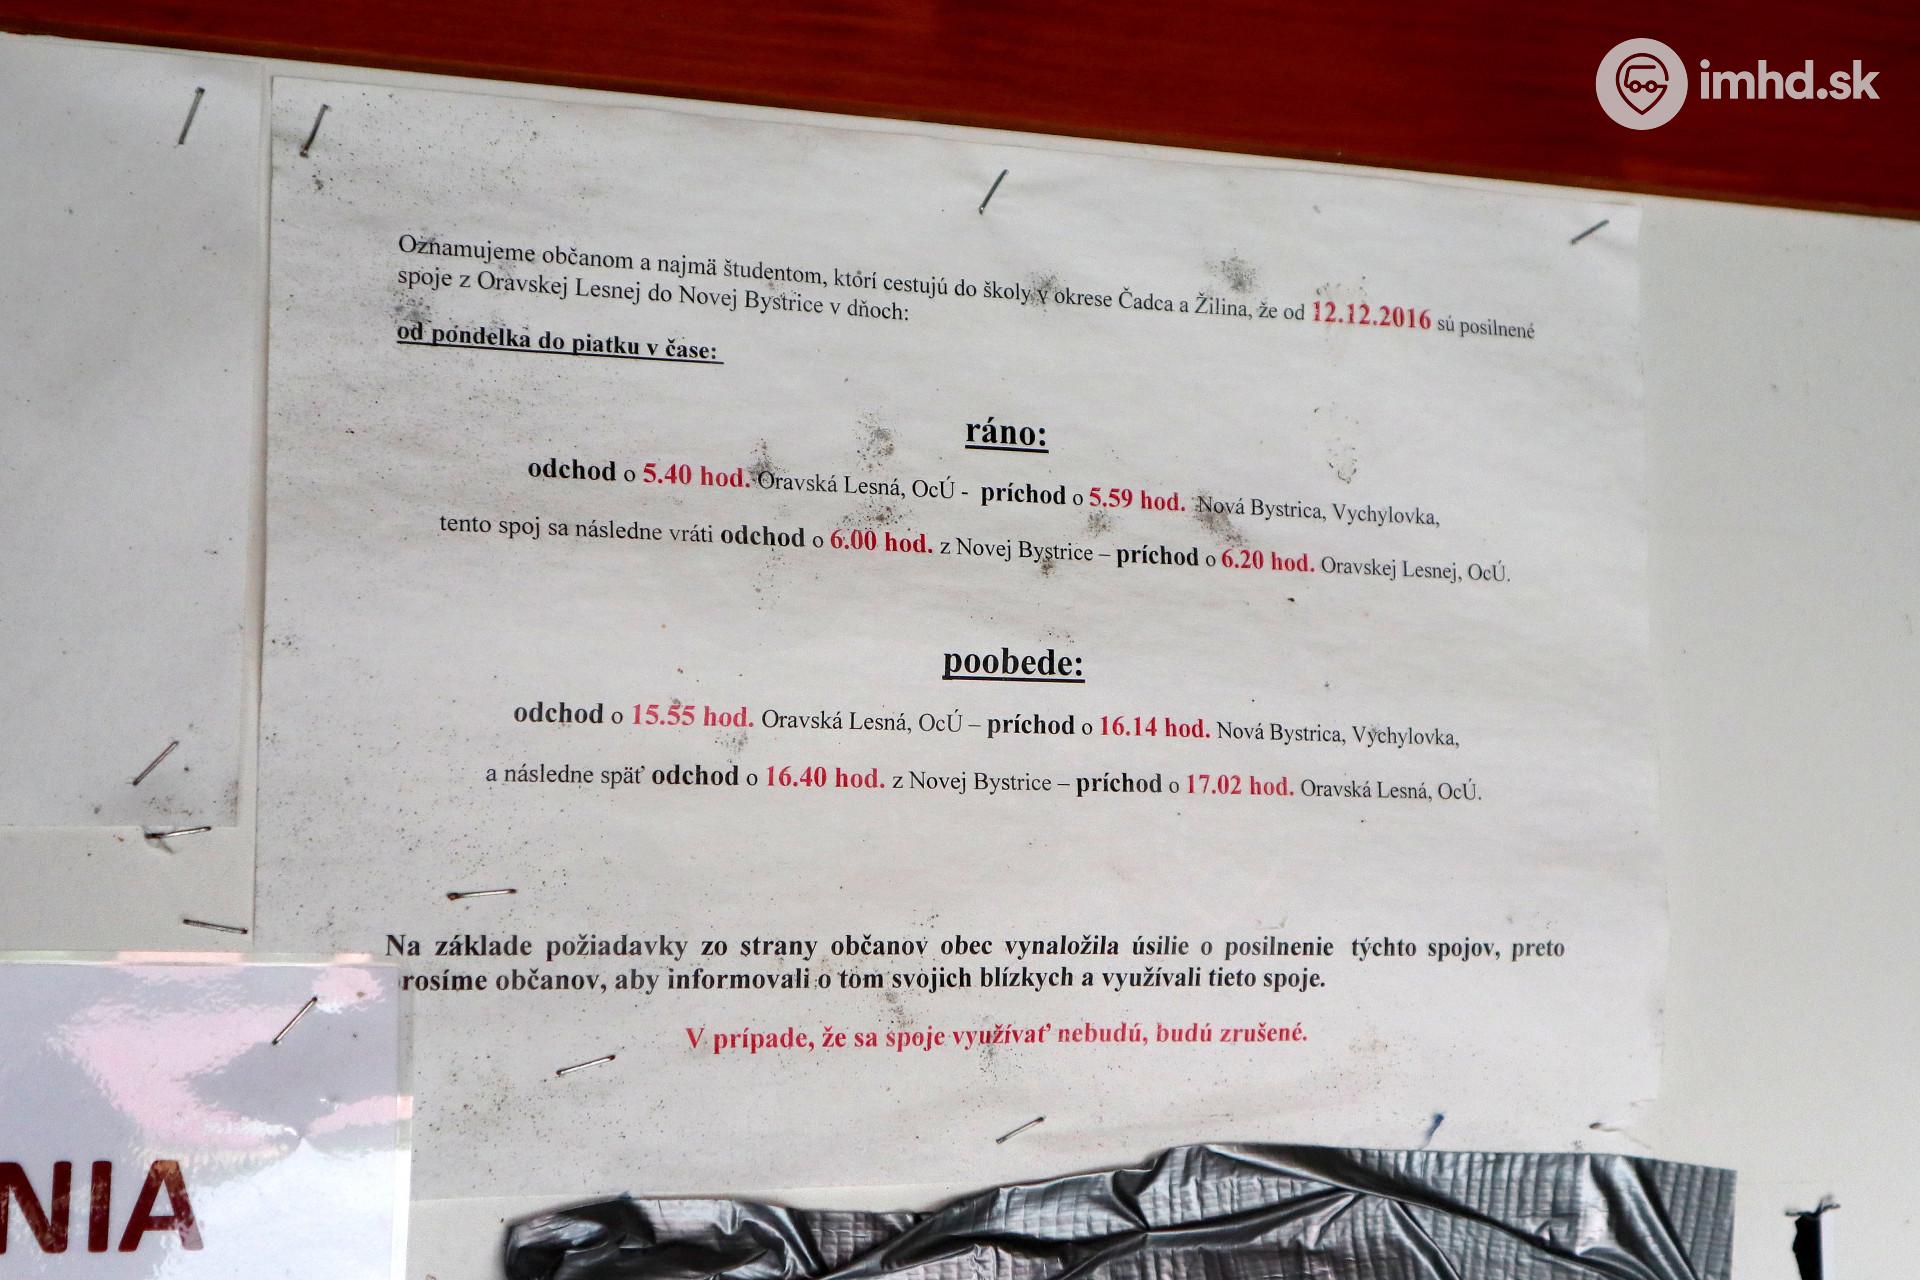 imhd.sk
Oznamujeme občanom a najmä študentom, ktorí cestujú do školy v okrese Čadca a Žilina, že od 12.12.2016 sú posilnené
spoje z Oravskej Lesnej do Novej Bystrice v dňoch:
od pondelka do piatku v čase:
ráno:
odchod o 5.40 hod. Oravská Lesná, OcÚ - príchod o 5.59 hod. Nová Bystrica, Vychylovka,
tento spoj sa následne vráti odchod o 6.00 hod. z Novej Bystrice – príchod o 6.20 hod. Oravskej Lesnej, OcÚ.
poobede:
odchod o 15.55 hod. Oravská Lesná, OcÚ – príchod o 16.14 hod. Nová Bystrica, Vychylovka,
a následne späť odchod o 16.40 hod. z Novej Bystrice – príchod o 17.02 hod. Oravská Lesná, OcÚ.
Na základe požiadavky zo strany občanov obec vynaložila úsilie o posilnenie týchto spojov, preto
rosíme občanov, aby informovali o tom svojich blízkych a využívali tieto spoje.
V prípade, že sa spoje využívať nebudú, budú zrušené.
NIA